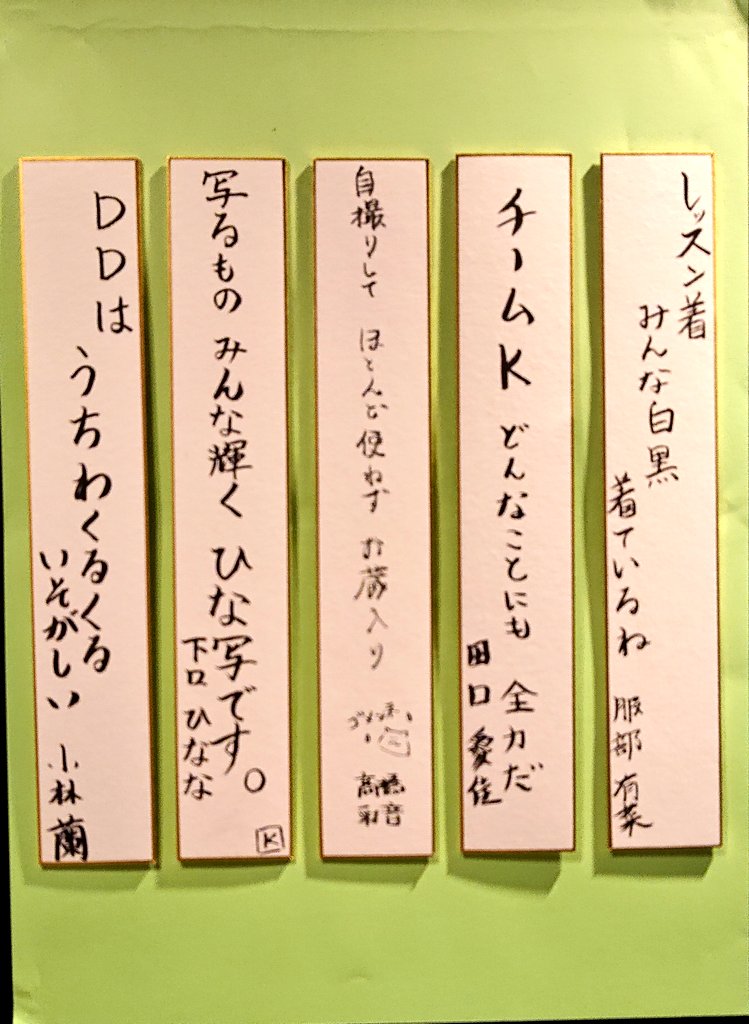 レッスン着
みんな白黒
着ているね
服部有菜
チームK どんなことにも
全力だ
田口愛佳
自撮りして ほとんど使わず お蔵入り
高橋
彩音
写るもの みんな輝く ひな写です。
下口ひなな
K
DDは
うちわくるくる
いそがしい
小林蘭